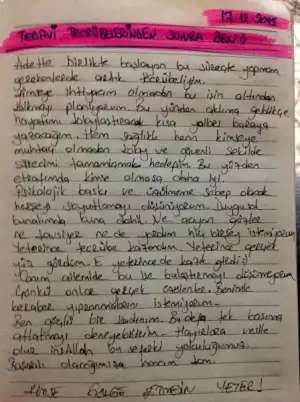 17.12.2015
TEDAVİ TECRÜBELERİNDEN SONRA BEN☺
Adetle birlikte başlayan bu süreçte yapmam
gerekenlerde artık tecrübeliyim.
Kimseye ihtiyacım olmadan bu işin altından
kalkmayı planlıyorum. Bu yüzden aklıma geldikçe
hayatımı kolaylaştıracak kısa yolları buraya
yazacağım. Hem sağlıklı hem kimseye
muhtaç olmadan kolay ve güvenli şekilde
sürecimi tamamlamak hedefim. Bu yüzden
etrafımda kimse olmasa daha iyi.
Psikolojik baskı ve üzülmeme sebep olacak
herşeyi soyutlamayı düşünüyorum. Duygusal
bunalımda buna dahil. Ne acıyan gözler
ne tavsiye ne de yardım hiç birşey istemiyorum
Yeterince tecrübe kazandım. Yeterince gerçek
yüz gördüm. E yeterince de kazık girdi :)
Yarım ailemide bu işe bulaştırmayı düşünmüyorum
Çünkü onlar gerçek özelenler. Benimle
beraber yıpranmalarını istemiyorum.
Ben güçlü bir kadınım. Bu defa tek başıma
atlatmayı deneyebilirim. Hayırlara vesile
olur inşAllah bu seferki yolculuğumuz.
Başarılı olacağımıza inancım tam.
KİMSE GÖLGE ETMESİN YETER!